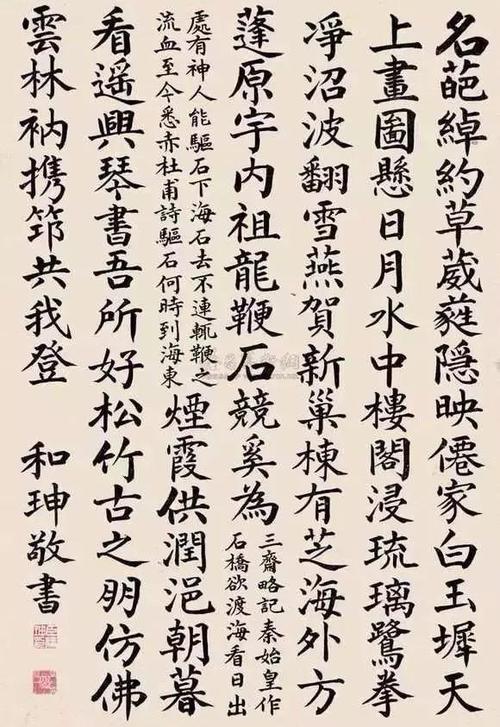 名葩綽約草葳蕤隱映僊家白玉墀天
上畫圖懸日月水中樓閣浸琉璃鷺拳
凈沼波翻雪燕賀新巢棟有芝海外方
蓬原宇内祖龍鞭石競奚為
三齋略記秦始皇作
石橋欲渡海看日出
處有神人能驅石下海石去不速輒鞭之
流血至今悉赤杜甫詩驅石何時到海東
煙霞供潤浥朝暮
看遥興琴書吾所好松竹古之朋仿佛
雲林衲携筇共我登
和珅敬書